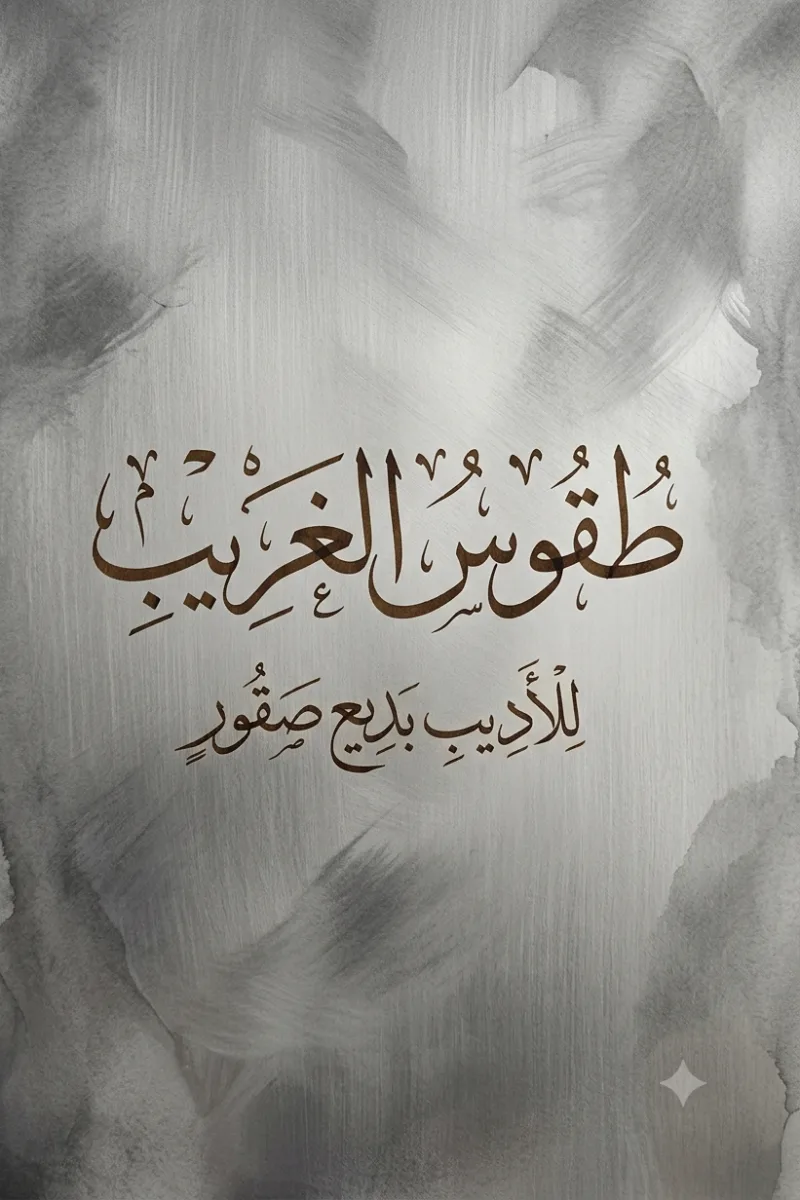 طُقُوسُ الغَرِيبِ
لِلْأَدِيبِ بَدِيع صَقُورٍ